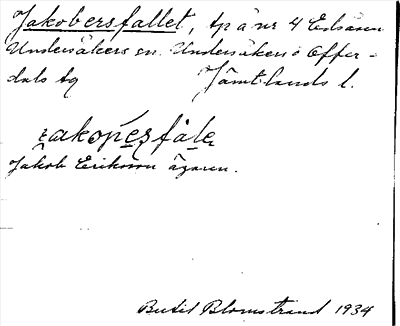 Jakobersfallet, tp å nr 4 Edsåsen
Undersåkers sn. Undersåkers o Offer-
dals tg Jämtlands l.
Jakob Eriksson ägaren.
Bertil Blomstrand 1934